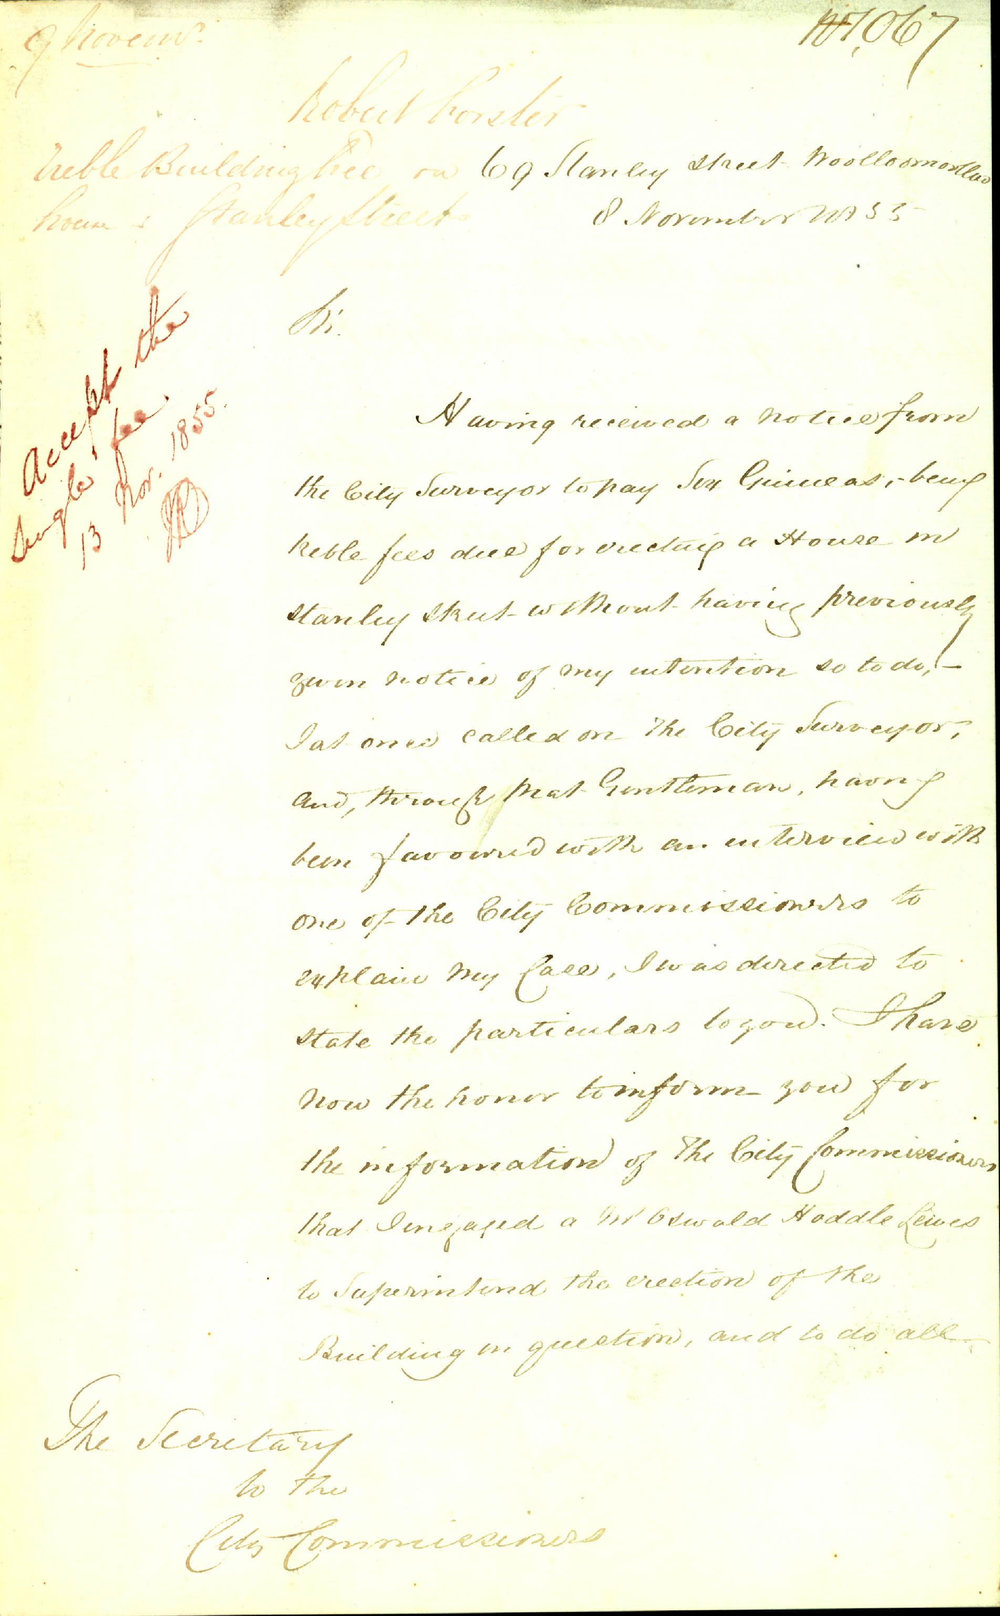 9 Novemr.
1,067
Robert Forster
Treble Building Fee on
house in Stanley Street
69 Stanley Street Woolloomoolloo
8 November 1855
Accept the
single fee.
13 Nov. 1855.
Sir.
Having received a notice from
the City Surveyor to pay Six Guineas, - being
treble fees due for erecting a House in
Stanley Street without having previously
given notice of my intention so to do, -
I at once called on the City Surveyor,
and, through that Gentleman, having
been favoured with an interview with
one of the City Commissioners to
explain my Case, I was directed to
state the particulars to you. I have
now the honor to inform you for
the information of the City Commissioners
that I engaged a Mr Oswald Hoddle Lewis
to Superintend the erection of the
Building in question, and to do all
The Secretary
to the
City Commissioners